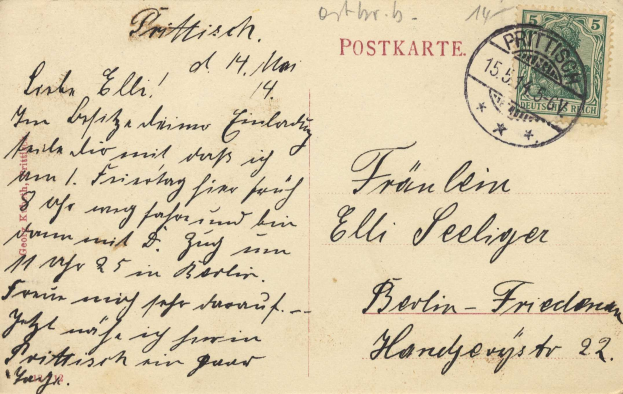 Prittisch.
d. 14. Mai
14.
Liebe Elli!
Im Besitze deiner Einladung
teile dir mit daß ich
am 1. Feiertag hier früh
8 Uhr weg fahre und bin
dann mit D. Zug um
11 Uhr 25 in Berlin.
Freue mich sehr darauf. --
Jetzt nähe ich hier in
Prittisch ein paar
Tage.
14
POSTKARTE.
5 5
DEUTSCHES REICH
PRITTISCH
15.5.14.5-6V.
* * *
Fräulein
Elli Seeliger
Berlin - Friedenau
Handjerystr 22.
Georg